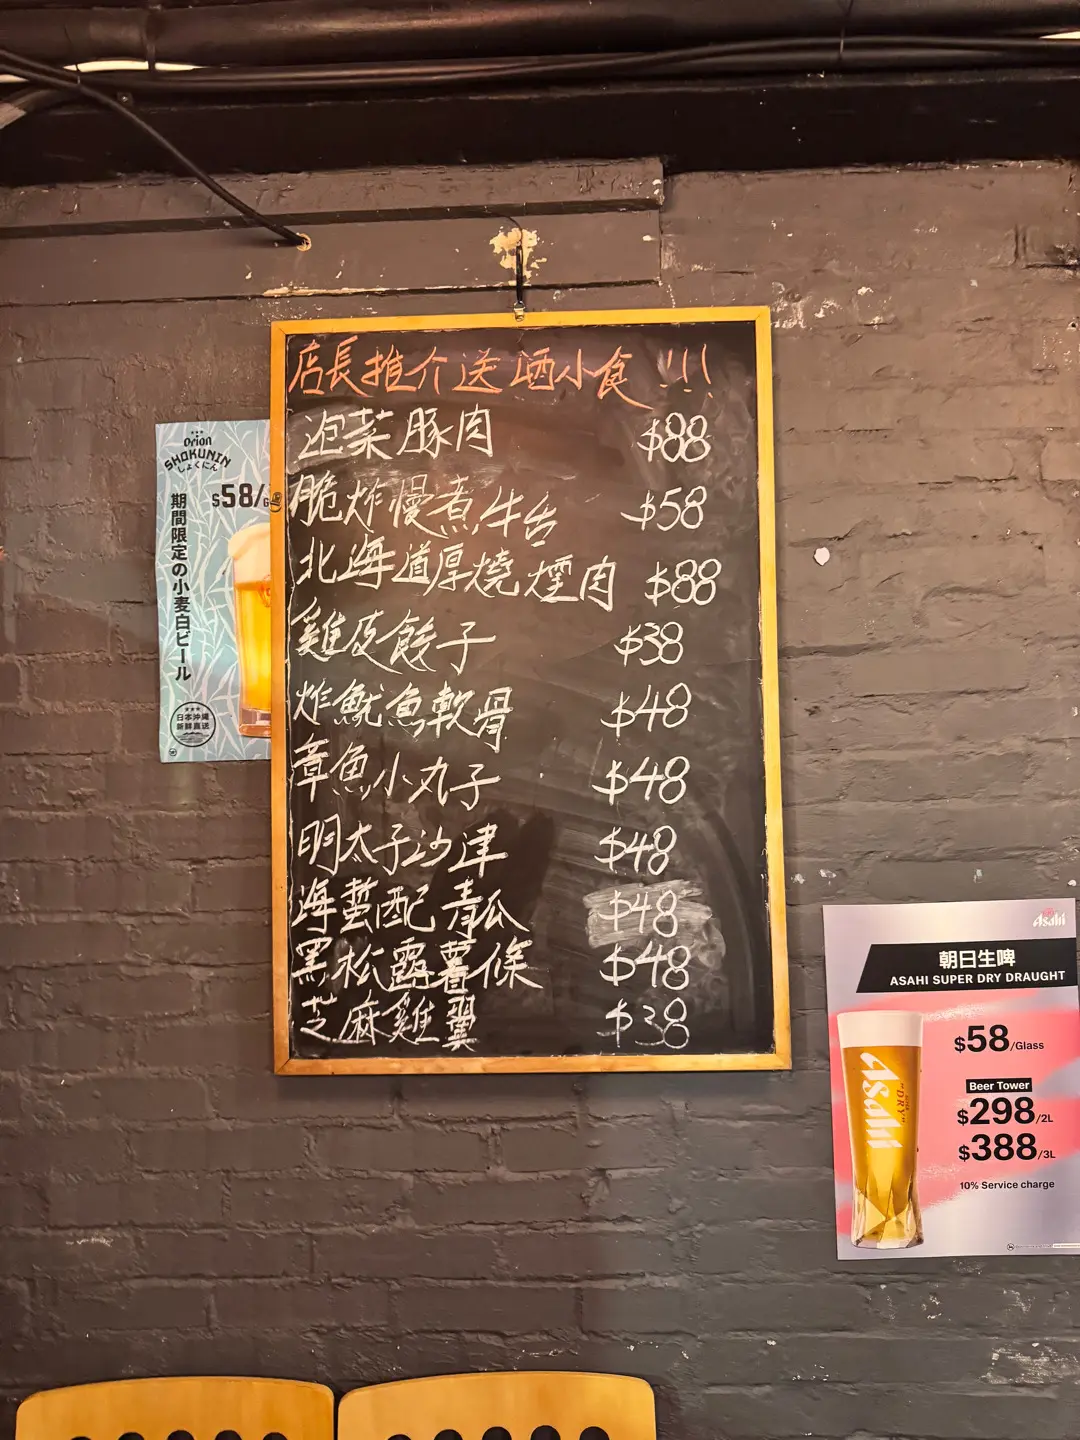 店長推介送酒小食!!!
泡菜豚肉 $88
脆炸慢煮牛舌 $58
北海道厚燒煙肉 $88
雞皮餃子 $38
炸魷魚軟骨 $48
章魚小丸子 $48
明太子沙津 $48
海蜇配青瓜 $48
黑松露薯條 $48
芝麻雞翼 $38
Orion
SHOKUNIN
しょくにん
$58/G
期間限定の小麦白ビール
日本沖縄
新鮮直送
Asahi
朝日生啤
ASAHI SUPER DRY DRAUGHT
$58/Glass
Beer Tower
$298/2L
$388/3L
10% Service charge
Asahi
"DRY"